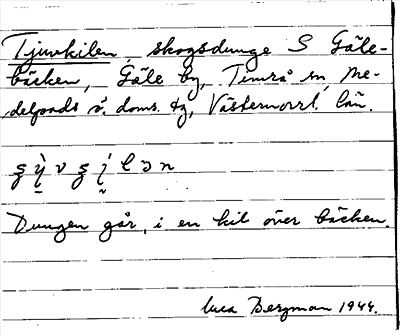 Tjuvkilen, skogsdunge S Gäle-
bäcken, Gäle by, Timrå sn, Me-
delpads ö. doms. tg, Västernorrl. län.
Dungen går i en kil över bäcken.
Bergman 1944.